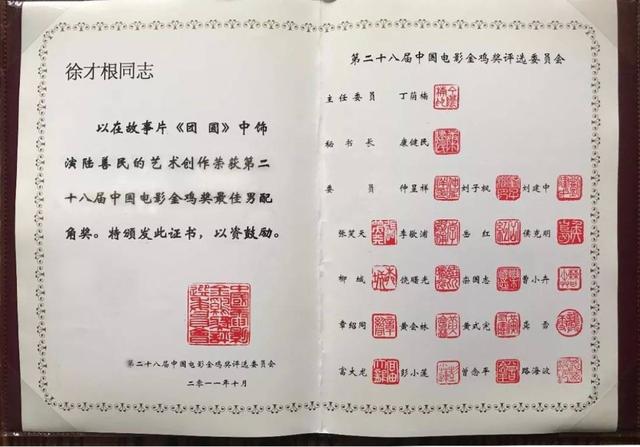 徐才根同志
以在故事片《团圆》中饰
演陆善民的艺术创作荣获第二
十八届中国电影金鸡奖最佳男配
角奖。特颁发此证书，以资鼓励。
第二十八届中国电影金鸡奖评选委员会
二〇一一年十月
第二十八届中国电影金鸡奖评选委员会
主任委员 丁荫楠
秘书长 康健民
委员 仲呈祥 刘子枫 刘建中
张笑天 李歇浦 岳红 侯克明
柳城 饶曙光 栾国志 曹小卉
章绍同 黄会林 黄式宪 龚杏
富大龙 彭小莲 曾念平 路海波